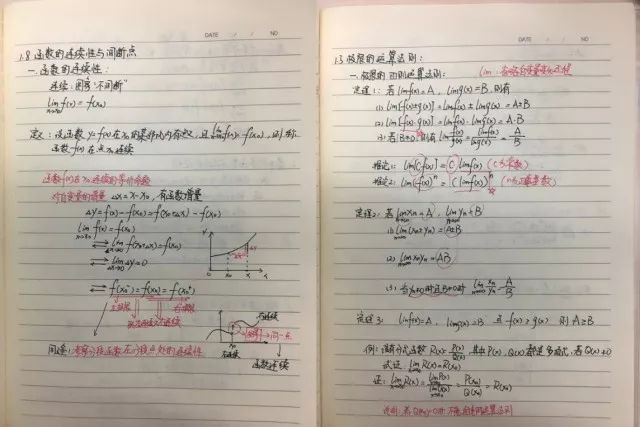 DATE / / NO
1.8 函数的连续性与间断点
一. 函数的连续性:
连续: 图象"不间断"
lim f(x) = f(x₀)
x→x₀
定义: 设函数 y=f(x) 在 x₀ 的某邻域内有定义, 且 lim f(x) = f(x₀), 则称
x→x₀
函数 f(x) 在点 x₀ 连续
函数 f(x) 在 x₀ 连续的等价
对自变量的增量 Δx = x - x₀, 有函数增量
Δy = f(x) - f(x₀) = f(x₀+Δx) - f(x₀)
lim f(x) = f(x₀)
x→x₀
⇌ lim f(x₀+Δx) = f(x₀)
Δx→0
⇌ lim Δy = 0
Δx→0
⇔ f(x₀⁻) = f(x₀) = f(x₀⁺)
左连续
右连续
间断点: 考察分段函数在分段点处的连续性
函数连续
DATE / / NO
1.3 极限的运算法则:
一. 极限的四则运算法则:
lim: 省略自变量变化过程
定理1: 若 lim f(x) = A, lim g(x) = B, 则有
(1) lim [f(x) ± g(x)] = lim f(x) ± lim g(x) = A ± B
(2) lim [f(x)·g(x)] = lim f(x)·lim g(x) = A·B
(3) 若 B≠0, 则有 lim f(x)/g(x) = lim f(x)/lim g(x) = A/B
推论1: lim [C f(x)] = C lim f(x) (C为常数)
推论2: lim [f(x)]ⁿ = [lim f(x)]ⁿ (n为正整数)
定理2: 若 lim xₙ = A, lim yₙ = B
n→∞ n→∞
(1) lim (xₙ ± yₙ) = A±B
n→∞
(2) lim xₙyₙ = AB
n→∞
(3) 当 yₙ≠0 时且 B≠0 时 lim xₙ/yₙ = A/B
n→∞
定理3: lim f(x) = A, lim g(x) = B 且 f(x) ≥ g(x) 则 A≥B
例: 设有分式函数 R(x) = P(x)/Q(x) 其中 P(x), Q(x) 都是多项式, 若 Q(x₀)≠0
试证: lim R(x) = R(x₀)
x→x₀
证: lim R(x) = lim P(x)/lim Q(x) = P(x₀)/Q(x₀) = R(x₀)
x→x₀
说明: 若 Q(x₀)=0 时 不能直接用运算法则